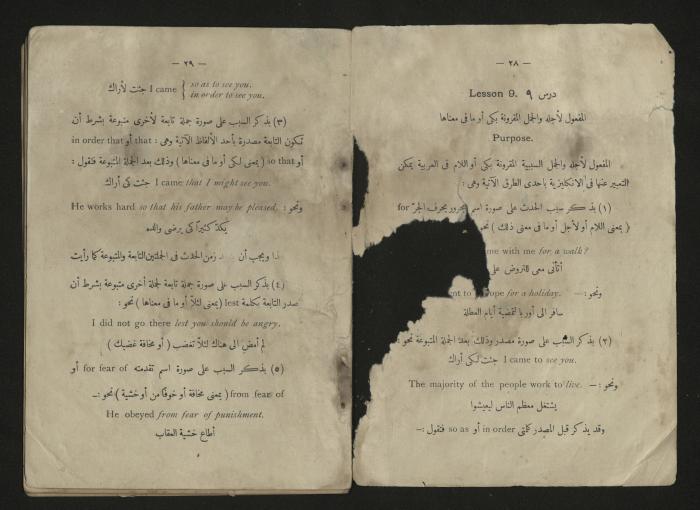 — ٢٨ —
Lesson 9. درس ٩
المفعول لأجله والجمل المقرونة بكى أو ما فى معناها
Purpose.
المفعول لأجله والجمل السببية المقرونة بكى أو اللام فى العربية يمكن
التعبير عنها فى الانكليزية باحدى الطرق الآتية وهى :
(١) يذكر سبب الحدث على صورة اسم مجرور بحرف الجرّ for
( بمعنى اللام أو لأجل أو ما فى معنى ذلك ) نحو
me with me for a walk?
أتأتى معى للتروض على
ونحو: — ent to ope for a holiday.
سافر الى أوربا لتمضية أيام العطلة
(٢) يذكر السبب على صورة مصدر وذلك بعد الجملة المتبوعة نحو:
I came to see you. جئت لكى أراك
ونحو: — The majority of the people work to live.
يشتغل معظم الناس ليعيشوا
وقد يذكر قبل المصدر كلمتى in order أو so as فتقول : —
— ٢٩ —
جئت لأراك I came { so as to see you.
in order to see you.
(٣) يذكر السبب على صورة جملة تابعة لأخرى متبوعة بشرط أن
تكون التابعة مصدرة بأحد الألفاظ الآتية وهى : that أو in order that
أو so that ( بمعنى لكى أو ما فى معناها ) وذلك بعد الجملة المتبوعة فتقول :
I came that I might see you. جئت كى أراك
ونحو : He works hard so that his father may be pleased.
يكدّ كثيرا كى يرضى والده
هذا ويجب أن زمن الحدث فى الجملتين التابعة والمتبوعة كما رأيت
(٤) يذكر السبب على صورة جملة تابعة لجملة أخرى متبوعة بشرط أن
تصدر التابعة بكلمة lest (بمعنى لئلاّ أو ما فى معناها ) نحو :
I did not go there lest you should be angry.
لم أمض الى هناك لئلاّ تغضب ( أو مخافة غضبك )
(٥) يذكر السبب على صورة اسم تقدمته for fear of أو
from fear of ( بمعنى مخافة أو خوفا من أو خشية ) نحو :—
He obeyed from fear of punishment.
أطاع خشية العقاب